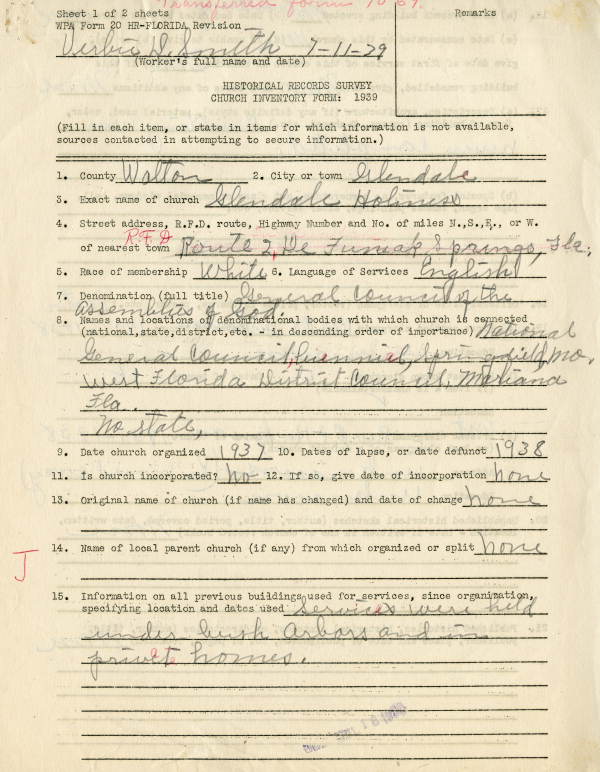 Transferred form 10-69.
Sheet 1 of 2 sheets
Remarks
WPA Form 20 HR-FLORIDA Revision
Verbie D. Smith 7-11-39
(Worker's full name and date)
HISTORICAL RECORDS SURVEY
CHURCH INVENTORY FORM: 1939
(Fill in each item, or state in items for which information is not available,
sources contacted in attempting to secure information.)
1. County Walton 2. City or town Glendale
3. Exact name of church Glendale Holiness
4. Street address, R.F.D. route, Highway Number and No. of miles N.,S.,E., or W.
R.F.D
of nearest town Route 2, De Funiak Springs, Fla.;
5. Race of membership White 6. Language of Services English
7. Denomination (full title) General Council of the
Assemblies of God.
8. Names and locations of denominational bodies with which church is connected
(national,state,district,etc. - in descending order of importance) National
General Council, Biennial, Springfield, Mo.
West Florida District Council, Mariana
Fla.
No state,
9. Date church organized 1937 10. Dates of lapse, or date defunct 1938
11. Is church incorporated? No 12. If so, give date of incorporation None
13. Original name of church (if name has changed) and date of change None
14. Name of local parent church (if any) from which organized or split None
J
15. Information on all previous buildings used for services, since organization,
specifying location and dates used Services were held
under bush arbors and in
private homes.